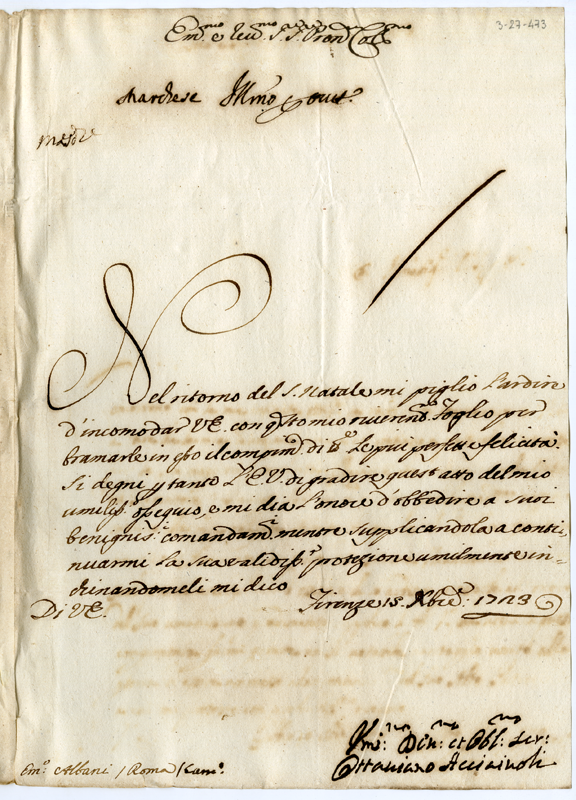 3-27-473
Em.mo e Rev.mo S.r S.r Pron Coll.mo
Marchese Ill.mo
Nel ritorno del S. Natale mi piglio l'ardire
d'incomodar V.E. con q.sto mio riverend.o foglio per
bramarle in esso il compim.to di t.e le più perfette felicità.
Si degni p tanto L'E.V. di gradire quest'atto del mio
umiliss.o ossequio, e mi dia l'onore d'obbedire a suoi
benigniss.i comandam.ti mentre supplicandola a conti-
nuarmi la sua validiss.a protezione umilmente in-
chinandomeli mi dico
Di V.E. Firenze 15. Xbre: 1723
Um.mo Div.mo et Obl.mo Ser.
Ottaviano Acciaiuoli
Em.o Albani / Roma / Cam.o